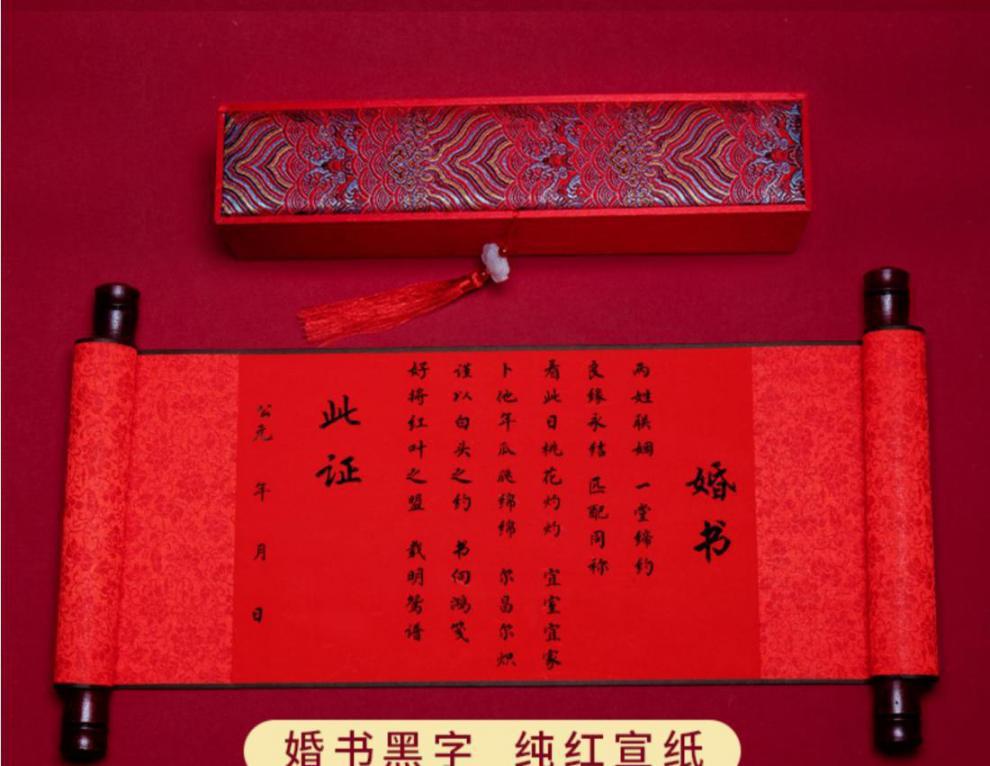 婚书
两姓联姻 一堂缔约
良缘永结 匹配同称
看此日桃花灼灼 宜室宜家
卜他年瓜瓞绵绵 尔昌尔炽
谨以白头之约 书向鸿笺
好将红叶之盟 载明鸳谱
此证
公元 年 月 日
婚书黑字 纯红宣纸